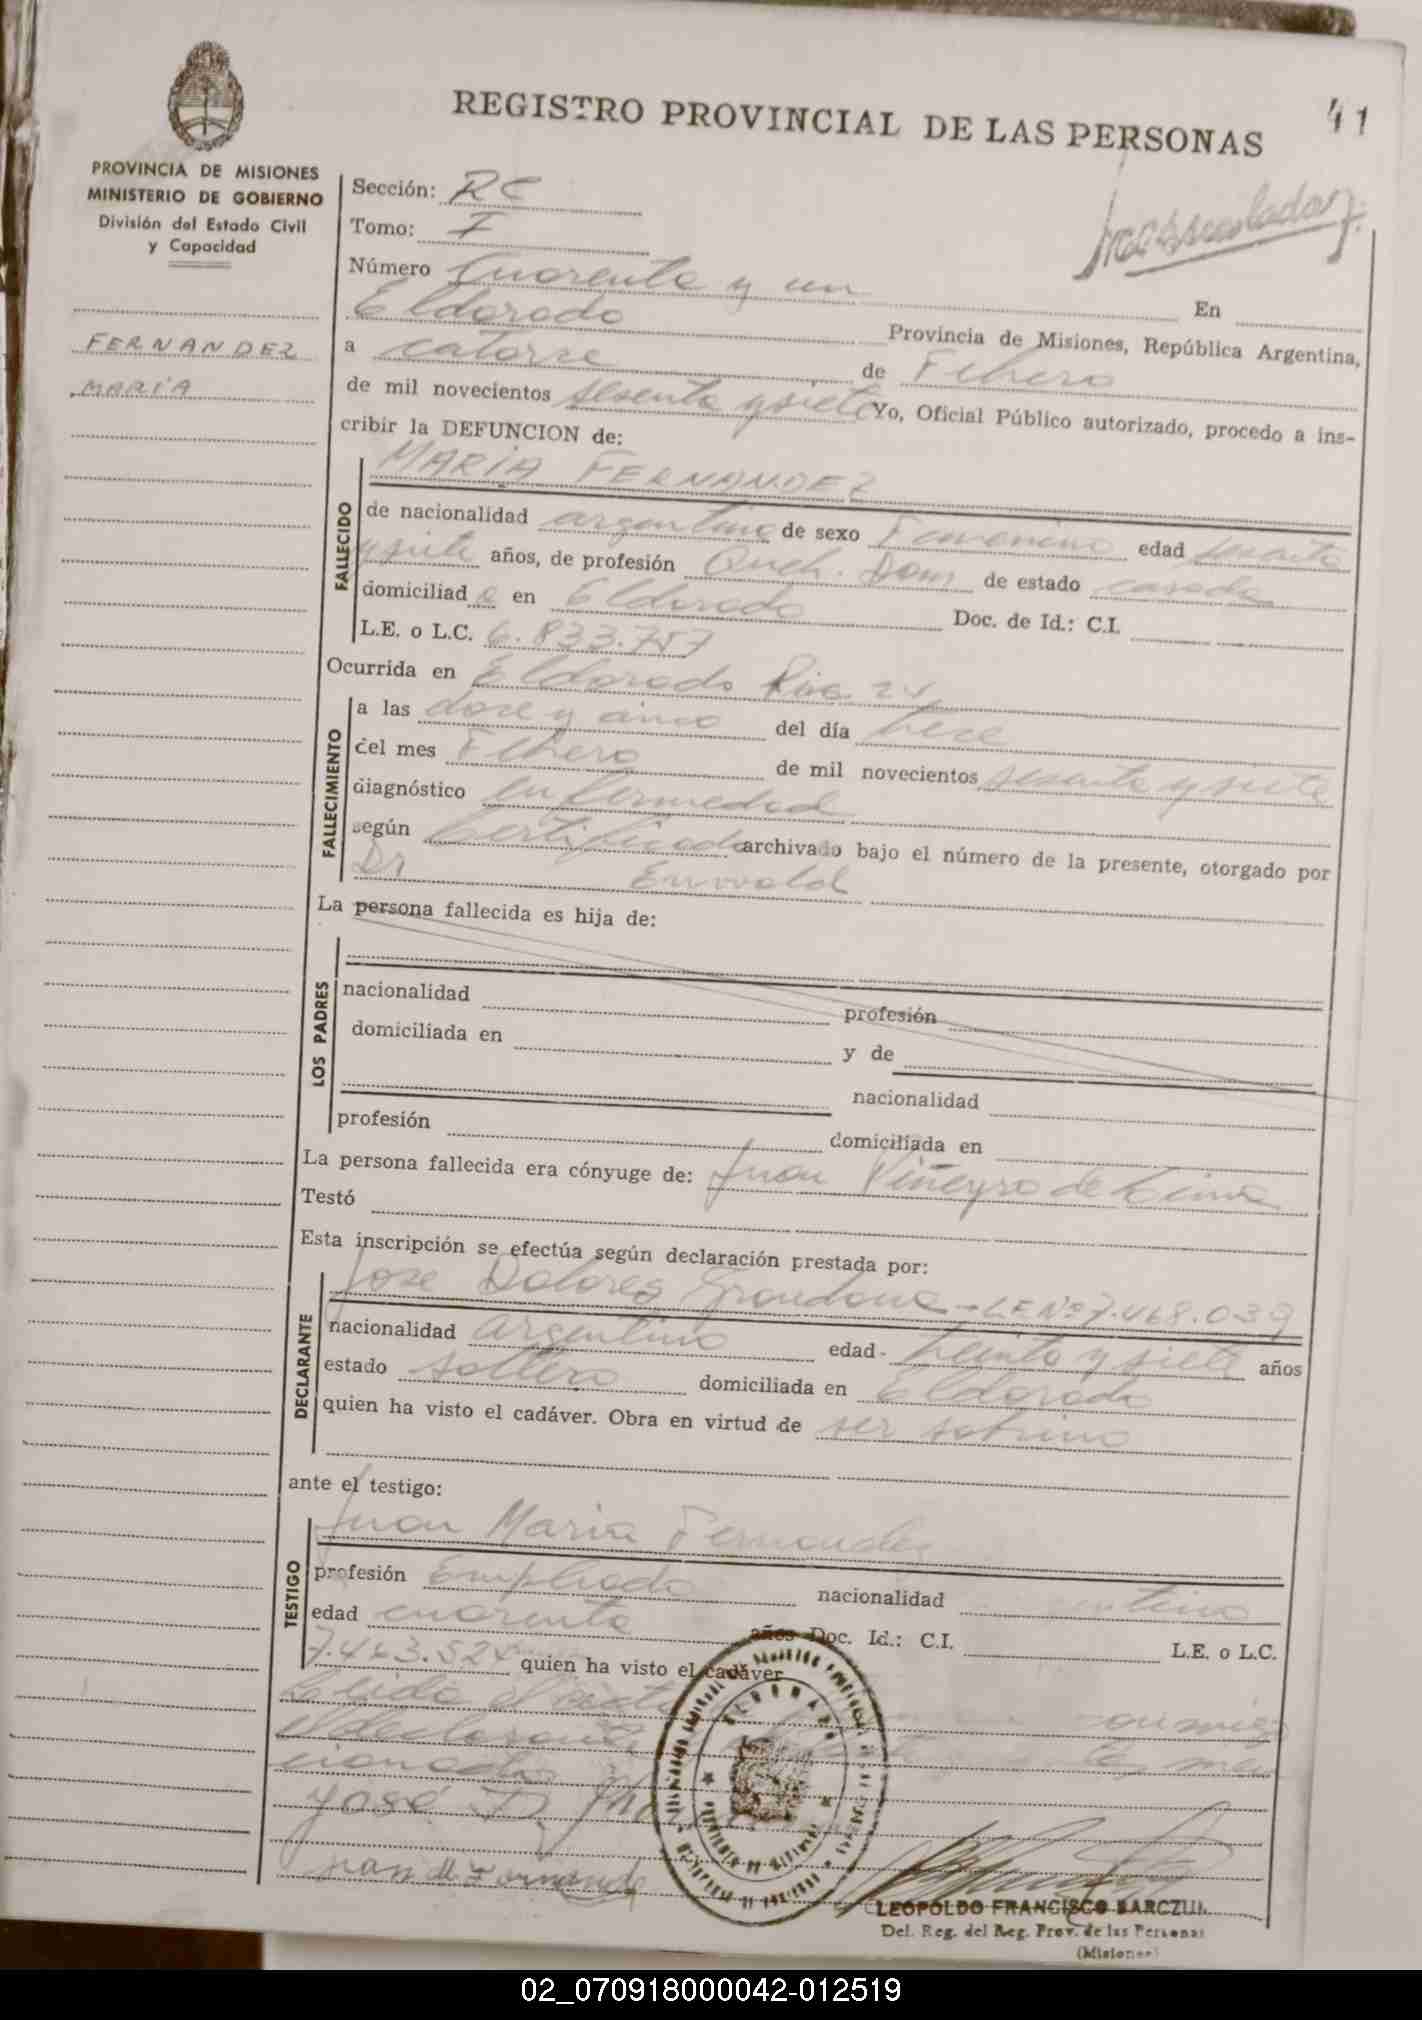 41
REGISTRO PROVINCIAL DE LAS PERSONAS
PROVINCIA DE MISIONES
MINISTERIO DE GOBIERNO
División del Estado Civil
y Capacidad
FERNANDEZ
MARIA
Sección: RC
Tomo: I
Número Cuarenta y un En
Eldorado Provincia de Misiones, República Argentina,
a catorze de Febrero
de mil novecientos sesenta y siete Yo, Oficial Público autorizado, procedo a ins-
cribir la DEFUNCION de:
MARIA FERNANDEZ
FALLECIDO
de nacionalidad argentina de sexo Femenino edad sesenta
y siete años, de profesión Queh. Dom de estado casada
domiciliada en Eldorado Doc. de Id.: C.I.
L.E. o L.C. 6.833.757
Ocurrida en Eldorado Km 24
FALLECIMIENTO
a las doze y cinco del día treze
del mes Febrero de mil novecientos sesenta y siete
diagnóstico enfermedad
según Certificado archivado bajo el número de la presente, otorgado por
Dr Enwald
La persona fallecida es hija de:
LOS PADRES
nacionalidad profesión
domiciliada en y de
nacionalidad
profesión domiciliada en
La persona fallecida era cónyuge de: Juan Viñeyro de Lima
Testó
Esta inscripción se efectúa según declaración prestada por:
DECLARANTE
Jose Dolores Grondona - L.E. Nº 7.468.039
nacionalidad argentino edad - treinta y siete años
estado soltero domiciliada en Eldorado
quien ha visto el cadáver. Obra en virtud de ser sobrino
ante el testigo:
TESTIGO
Juan Maria Fernandez
profesión Empleado nacionalidad
edad cuarenta años Doc. Id.: C.I. L.E. o L.C.
quien ha visto el cadáver
Leida el acta
el declarante
José D.
Juan M. Fernandez
ELDORADO
LEOPOLDO FRANCISCO BARCZUK
Del. Reg. del Reg. Prov. de las Personas
(Misiones)
02_070918000042-012519